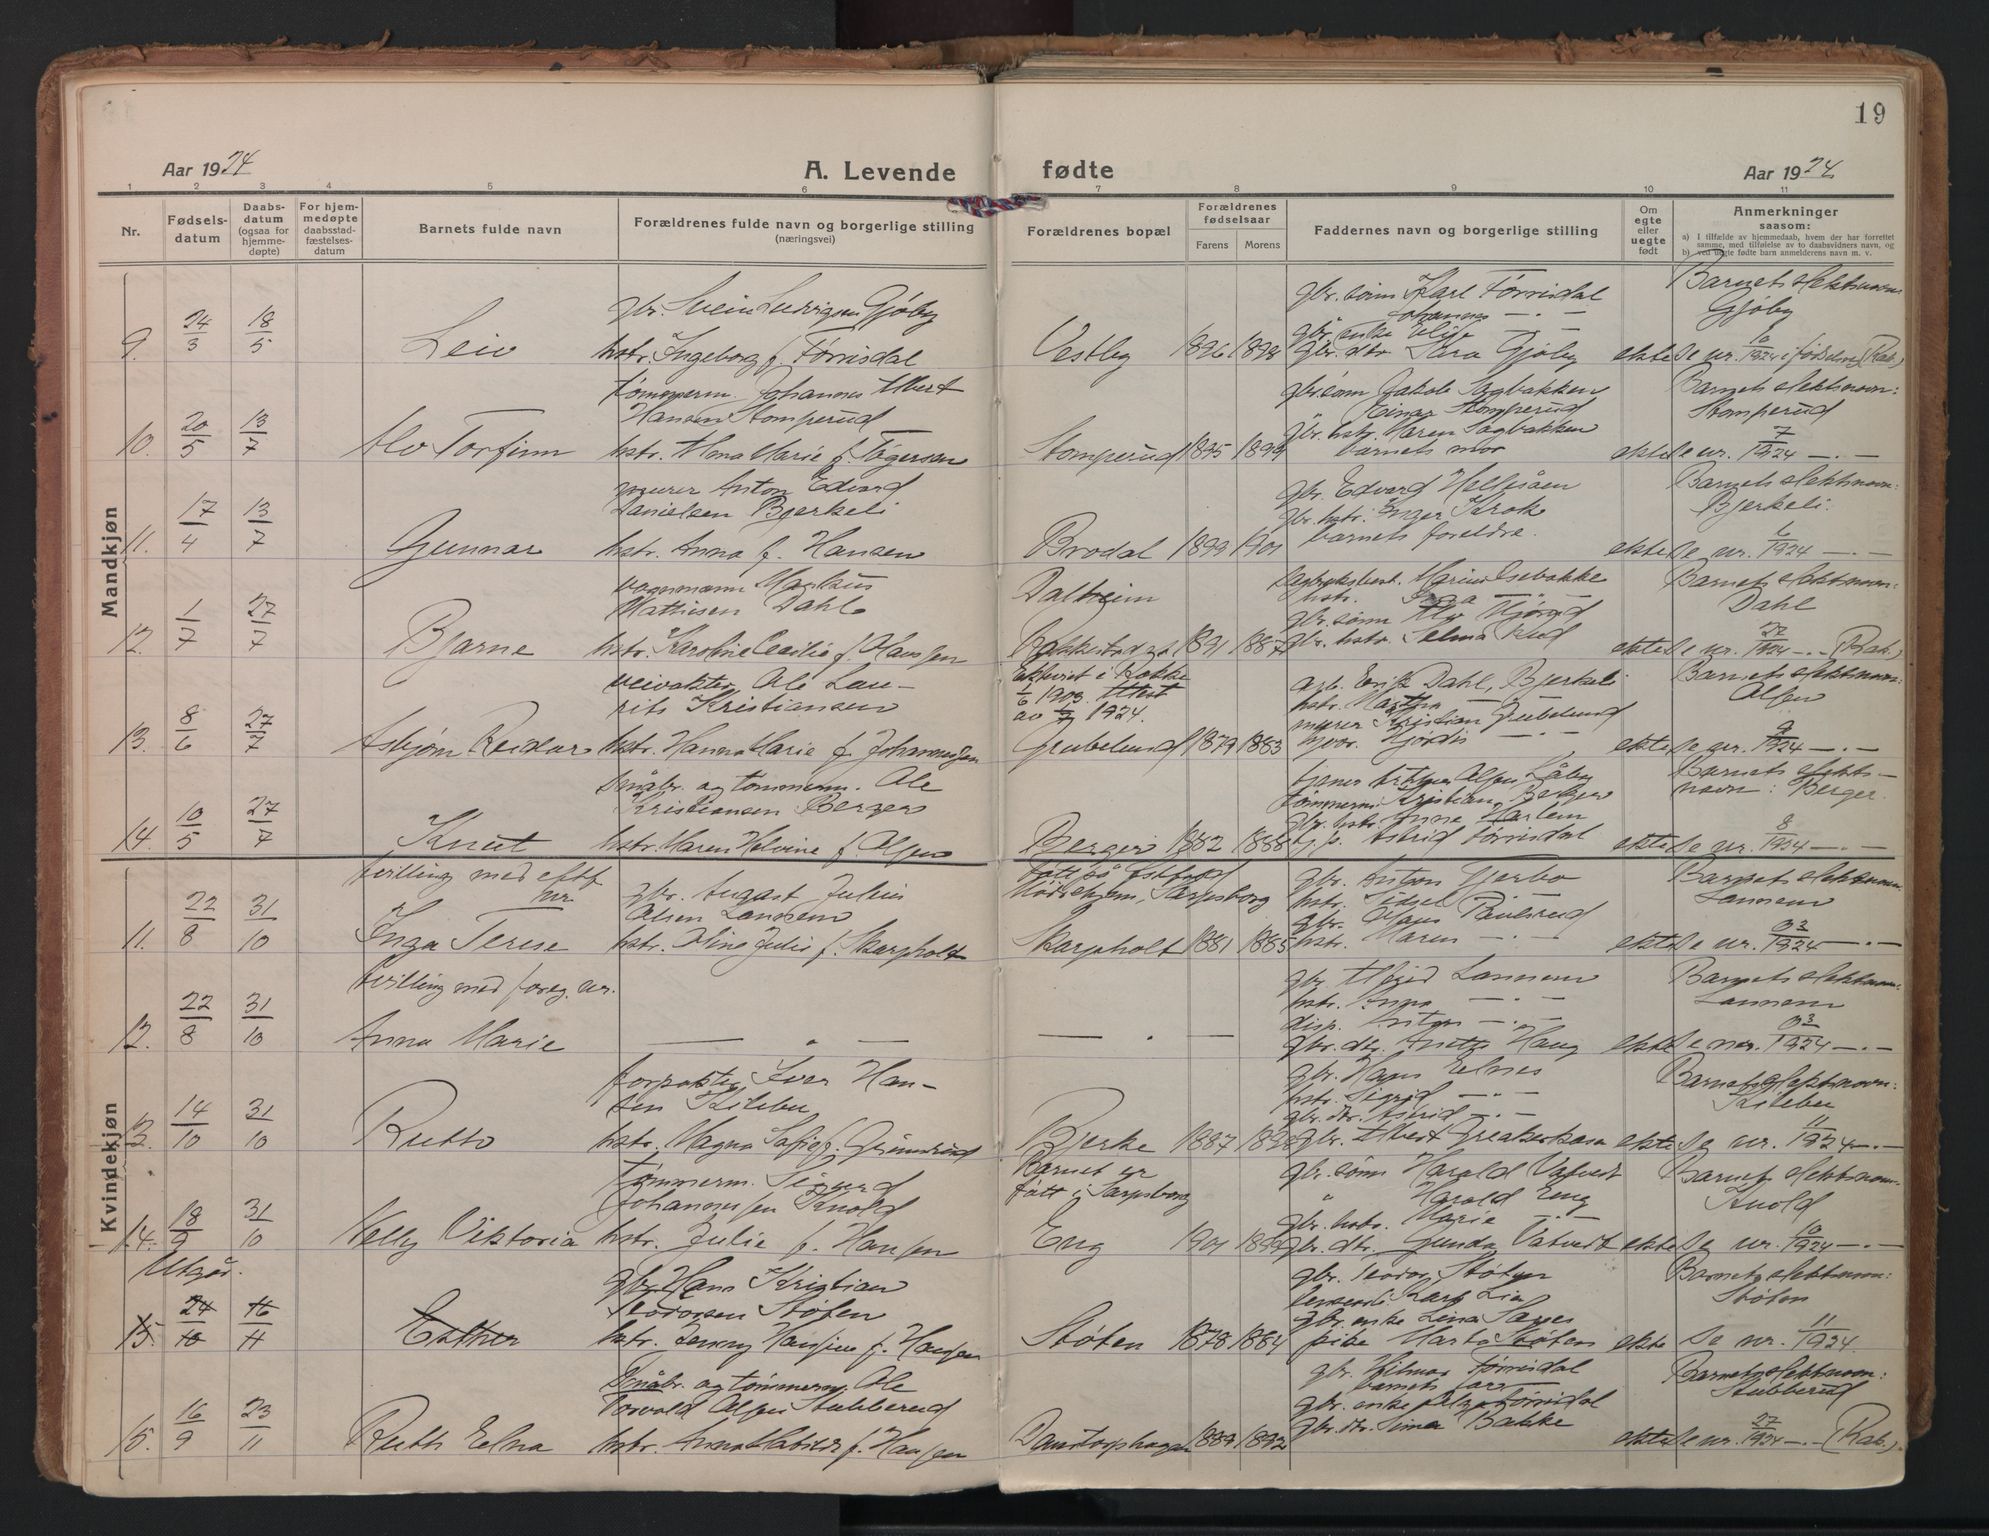 19
Aar 1924
A. Levende
fødte
Aar 1924
1 2 3 4 5 6 7 8 9 10 11
Nr.
Fødsels-
datum
Daabs-
datum
(ogsaa for
hjemme-
døpte)
For hjem-
medøpte
daabsstad-
fæstelses-
datum
Barnets fulde navn
Forældrenes fulde navn og borgerlige stilling
(næringsvei)
Forældrenes bopæl
Forældrenes
fødselsaar
Farens Morens
Faddernes navn og borgerlige stilling
Om
egte
eller
uegte
født
Anmerkninger
saasom:
a) I tilfælde av hjemmedaab, hvem der har forrettet
samme, med tilføielse av to daabsvidners navn, og
b) ved uegte fødte barn anmelderens navn m. v.
Mandkjøn
9. 24/3 18/5
Leiv
gbr. Svein Ludvigsen Gjøby
hstr. Ingeborg f. Tørrisdal
Vestby 1896 1898
gbr. sønn Karl Tørrisdal
Johannes — . —
gbr. enke Elise — —
gbr. dtr. Sara Gjøby
ekte
Barnets slektsnavn:
Gjøby
Se nr. /1924 i fødselsreg (Rak.)
10. 20/5 13/7
Alv Torfinn
tømmerm. Johannes Albert
Hansen Stomperud
hstr. Mona Marie f. Tøgersen
Stomperud 1895 1899
gbr. sønn Jakob Sagbakken
Einar Stomperud
gbr. hstr. Maren Sagbakken
barnets mor
ekte
Barnets slektsnavn:
Stomperud
Se nr. 7/1924 — . —
11. 17/4 13/7
Gunnar
murer Anton Edvard
Danielsen Bjerkeli
hstr. Anna f. Hansen
Brodal 1899 1901
gbr. Edvard Helgsåen
gbr. hstr. Inger Krok
barnets foreldre.
ekte
Barnets slektsnavn:
Bjerkeli.
Se nr. 6/1924 — . —
12. 1/7 27/7
Bjarne
vognmann Magnus
Mathisen Dahl
hstr. Karoline Cecilie f. Hansen
Dalheim
Rakkestad 1891 1887
hstr. Inga — . —
gbr. hstr. Selma Rud
ekte
Barnets slektsnavn:
Dahl
Se nr. 22/1924 — . — (Rak.)
13. 8/6 27/7
Asbjørn Reidar
veivokter Ole Lau-
rits Kristiansen
hstr. Hanna Marie f. Johannessen
1/6 1903. Attest
av 1924.
Grubelund 1879 1883
Erik Dahl, Bjerkeli
hstr. Martha
murer Kristian Grubelund
Hjørdis — . —
ekte
Barnets slektsnavn:
Olsen
Se nr. 9/1924 — . —
14. 10/5 27/7
Knut
Småbr. og tømmerm. Ole
Kristiansen Berger
hstr. Maren Helvine f. Olsen
Berger 1882 1888
tømmerm. Kristian Berger
gbr. hstr. Anne Harlem
Astrid Tørrisdal
ekte
Barnets slekts-
navn: Berger.
Se nr. 8/1924 — . —
Kvindekjøn
11. 22/8 31/10
tvilling med eftf.
nr.
Inga Terese
gbr. August Julius
Olsen Lannem
hstr. Aline Julie f. Skarpholt
Født på Østfold
Mødrehjem, Sarpsborg
Skarpholt 1881 1885
gbr. Anton Gjerbo
hstr. Sidsel — . —
gbr. Hans Paulsrud
hstr. Maren — . —
ekte
Barnets slektsnavn
Lannem
Se nr. 03/1924 — . —
12. 22/8 31/10
tvilling med foreg. nr.
Anna Marie
— " —
— . —
gbr. Lannem
hstr. Anna — . —
disp. Anton — . —
gbr. dtr. Anetta Haug
ekte
Barnets slektsnavn:
Lannem
Se nr. 03/1924 — . —
13. 14/10 31/10
Ruth
forpakter Iver Han-
sen Kilebu
hstr. Magna Sofie f. Grimsrud
Bjerke 1887
gbr. Hans Elnes
hstr. Sigrid — . —
gbr. dtr. Astrid — . —
gbr. Albert Greakerkasa
ekte
Barnets slektsnavn:
Kilebu
Se nr. 11/1924 — . —
14. 18/9 31/10
Nelly Viktoria
Tømmerm. Sigurd
Johannessen Knold
hstr. Julie f. Hansen
Barnet er
født i Sarpsborg
Eng 1901
gbr. sønn Harald Vatvedt
" Harald Eng
gbr. hstr. Marie — . —
gbr. dtr. Gunda Vatvedt
ekte
Barnets slektsnavn:
Knold
Se nr. 10/1924 — . —
Utgår.
15. 24/10 16/11
Esther
gbr. Hans Kristian
Teodorsen Støten
hstr. Jenny Hansine f. Hansen
Støten 1878 1884
gbr. Teodor Støten
Karl Lie
gbr. enke Lina
pike Marta Støten
ekte
Barnets slektsnavn:
Støten
Se nr. 11/1924.
15. 16/9 23/11
Ruth Edna
Småbr. og tømmerm. Ole
Torvald Olsen Stubberud
hstr. Anna Mathilde f. Hansen
1889 1892
gbr. Hilmar Tørrisdal
barnets far
gbr. enke Olga Tørrisdal
gbr. dtr. Signe Bakke
ekte
Barnets slektsnavn:
Stubberud
Se nr. 27/1924 — . — (Rak.)